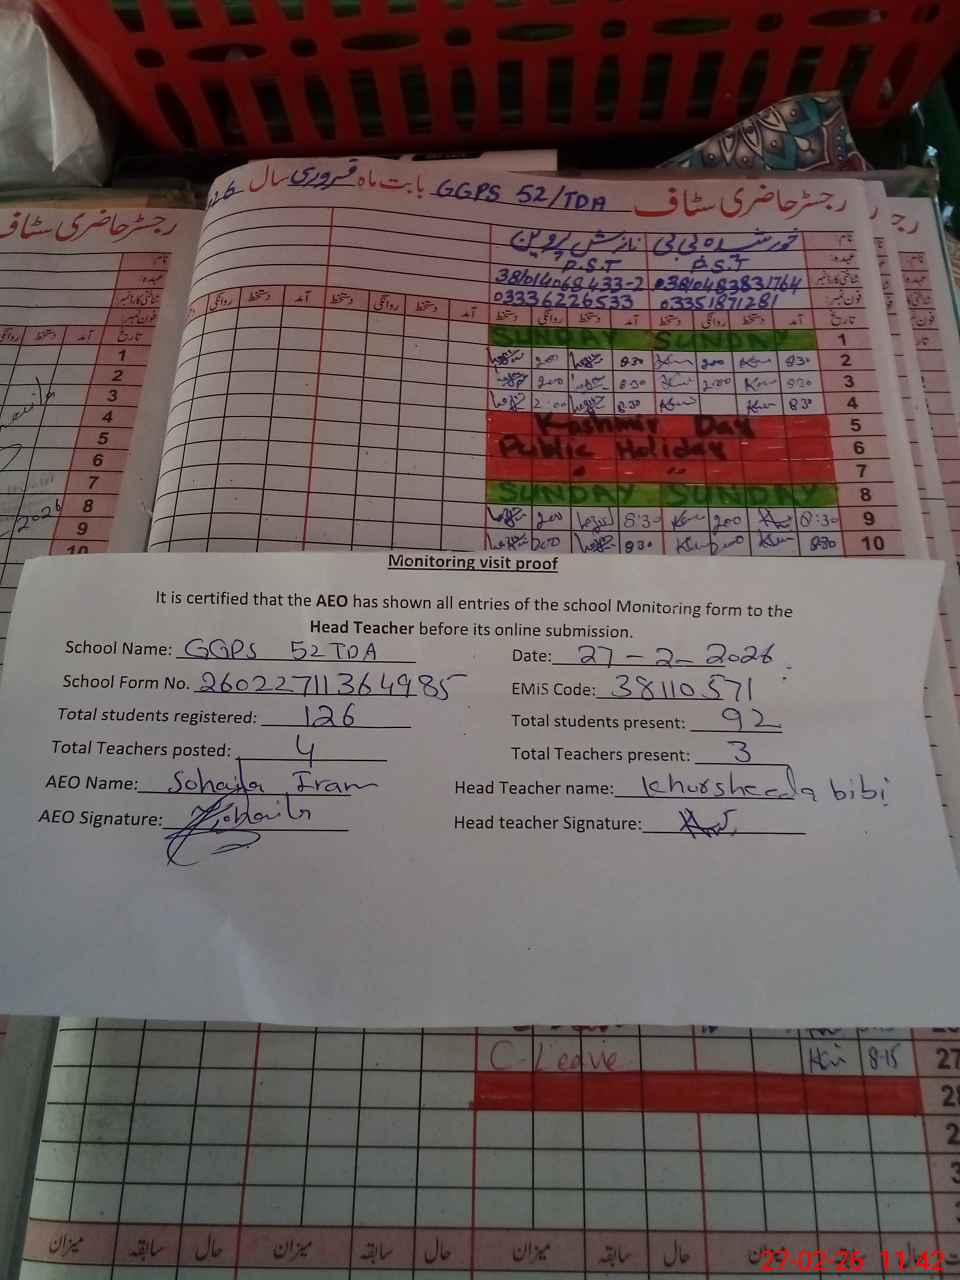 رجسٹر حاضری سٹاف GGPS 52/TDA بابت ماہ فروری سال
رجسٹر حاضری سٹاف
نام:
خورشیدہ بی بی نازش پروین
عہدہ:
P.S.T P.S.T
شناختی کارڈ نمبر
فون نمبر
03336226533 03351871281
تاریخ آمد دستخط روانگی دستخط آمد دستخط روانگی دستخط آمد دستخط روانگی دستخط آمد دستخط روانگی
SUNDAY SUNDAY 1
200 8:30 200 8:30 2
200 8:30 2:00 8:30 3
2:00 8:30 8:30 4
Kashmir Day 5
Public Holiday 6
" " 7
SUNDAY SUNDAY 8
200 8:30 200 8:30 9
200 8:30 200 8:30 10
تاریخ آمد دستخط روانگی
1
2
3
4
5
6
7
8
9
10
Monitoring visit proof
It is certified that the AEO has shown all entries of the school Monitoring form to the
Head Teacher before its online submission.
School Name: GGPS 52 TDA Date: 27-2-2026
School Form No. 26022711364985 EMiS Code: 38110571
Total students registered: 126 Total students present: 92
Total Teachers posted: 4 Total Teachers present: 3
AEO Name: Sohaila Iram Head Teacher name: Khursheeda bibi
AEO Signature: Sohaila Head teacher Signature:
C-Leave 8-15 27
28
میزان سابقہ حال میزان سابقہ حال میزان سابقہ حال میزان
27-02-26 11:42